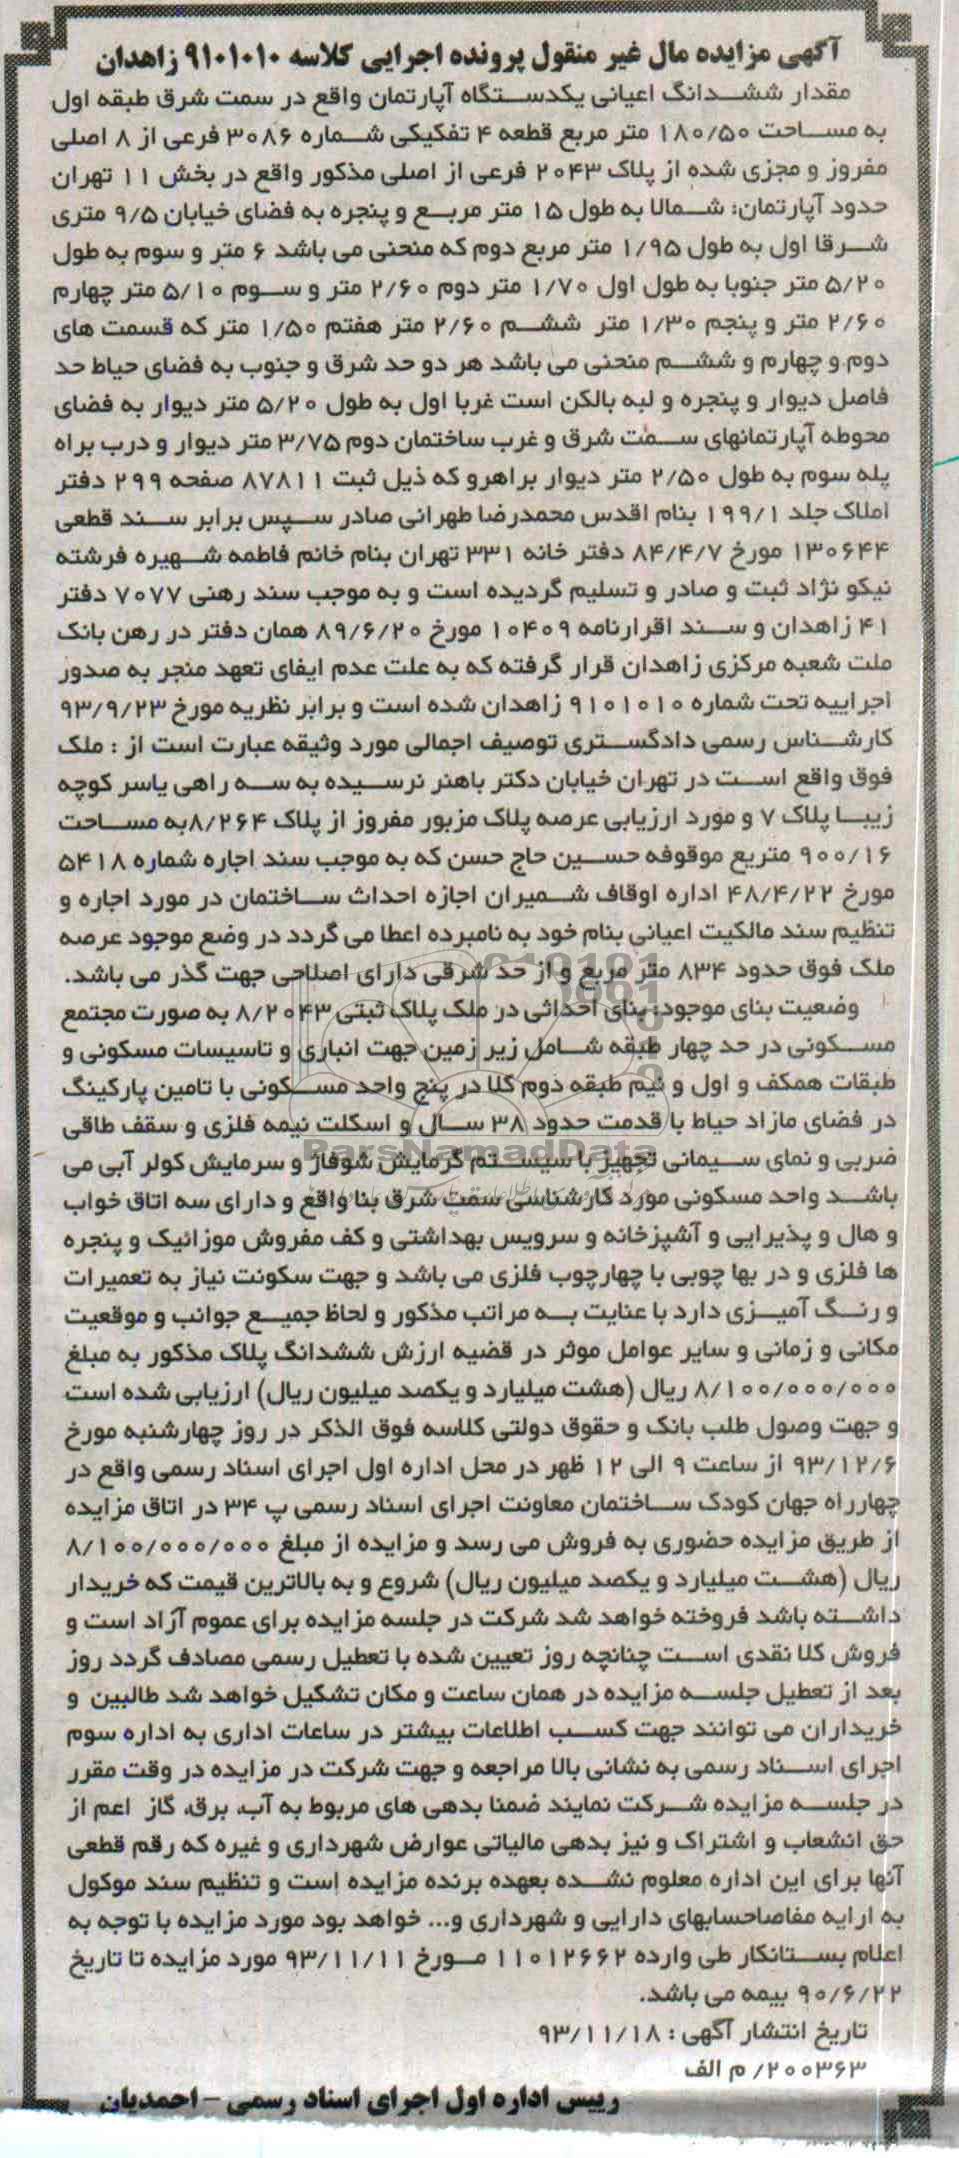 آگهی مزایده مال غیر منقول پرونده اجرایی کلاسه ۹۱۰۱۰۱۰ زاهدان
مقدار ششدانگ اعیانی یکدستگاه آپارتمان واقع در سمت شرق طبقه اول
به مساحت ۱۸۰/۵۰ متر مربع قطعه ۴ تفکیکی شماره ۳۰۸۶ فرعی از ۸ اصلی
مفروز و مجزی شده از پلاک ۲۰۴۳ فرعی از اصلی مذکور واقع در بخش ۱۱ تهران
حدود آپارتمان: شمالا به طول ۱۵ متر مربع و پنجره به فضای خیابان ۹/۵ متری
شرقا اول به طول ۱/۹۵ متر مربع دوم که منحنی می باشد ۶ متر و سوم به طول
۵/۲۰ متر جنوبا به طول اول ۱/۷۰ متر دوم ۲/۶۰ متر و سوم ۵/۱۰ متر چهارم
۲/۶۰ متر و پنجم ۱/۳۰ متر ششم ۲/۶۰ متر هفتم ۱/۵۰ متر که قسمت های
دوم و چهارم و ششم منحنی می باشد هر دو حد شرق و جنوب به فضای حیاط حد
فاصل دیوار و پنجره و لبه بالکن است غربا اول به طول ۵/۲۰ متر دیوار به فضای
محوطه آپارتمانهای سمت شرق و غرب ساختمان دوم ۳/۷۵ متر دیوار و درب براه
پله سوم به طول ۲/۵۰ متر دیوار براهرو که ذیل ثبت ۸۷۸۱۱ صفحه ۲۹۹ دفتر
املاک جلد ۱۹۹/۱ بنام اقدس محمدرضا طهرانی صادر سپس برابر سند قطعی
۱۳۰۶۴۴ مورخ ۸۴/۴/۷ دفتر خانه ۳۳۱ تهران بنام خانم فاطمه شهیره فرشته
نیکو نژاد ثبت و صادر و تسلیم گردیده است و به موجب سند رهنی ۷۰۷۷ دفتر
۴۱ زاهدان و سند اقرارنامه ۱۰۴۰۹ مورخ ۸۹/۶/۲۰ همان دفتر در رهن بانک
ملت شعبه مرکزی زاهدان قرار گرفته که به علت عدم ایفای تعهد منجر به صدور
اجراییه تحت شماره ۹۱۰۱۰۱۰ زاهدان شده است و برابر نظریه مورخ ۹۳/۹/۲۳
کارشناس رسمی دادگستری توصیف اجمالی مورد وثیقه عبارت است از : ملک
فوق واقع است در تهران خیابان دکتر باهنر نرسیده به سه راهی یاسر کوچه
زیبا پلاک ۷ و مورد ارزیابی عرصه پلاک مزبور مفروز از پلاک ۸/۲۶۴به مساحت
۹۰۰/۱۶ متربع موقوفه حسین حاج حسن که به موجب سند اجاره شماره ۵۴۱۸
مورخ ۴۸/۴/۲۲ اداره اوقاف شمیران اجازه احداث ساختمان در مورد اجاره و
تنظیم سند مالکیت اعیانی بنام خود به نامبرده اعطا می گردد در وضع موجود عرصه
ملک فوق حدود ۸۳۴ متر مربع و از حد شرقی دارای اصلاحی جهت گذر می باشد.
وضعیت بنای موجود: بنای احداثی در ملک پلاک ثبتی ۸/۲۰۴۳ به صورت مجتمع
مسکونی در حد چهار طبقه شامل زیر زمین جهت انباری و تاسیسات مسکونی و
طبقات همکف و اول و نیم طبقه دوم کلا در پنج واحد مسکونی با تامین پارکینگ
در فضای مازاد حیاط با قدمت حدود ۳۸ سال و اسکلت نیمه فلزی و سقف طاقی
ضربی و نمای سیمانی تجهیز با سیستم گرمایش شوفاژ و سرمایش کولر آبی می
ParsNamadData
باشد واحد مسکونی مورد کارشناسی سمت شرق بنا واقع و دارای سه اتاق خواب
و هال و پذیرایی و آشپزخانه و سرویس بهداشتی و کف مفروش موزائیک و پنجره
ها فلزی و در بها چوبی با چهارچوب فلزی می باشد و جهت سکونت نیاز به تعمیرات
و رنگ آمیزی دارد با عنایت به مراتب مذکور و لحاظ جمیع جوانب و موقعیت
مکانی و زمانی و سایر عوامل موثر در قضیه ارزش ششدانگ پلاک مذکور به مبلغ
۸/۱۰۰/۰۰۰/۰۰۰ ریال (هشت میلیارد و یکصد میلیون ریال) ارزیابی شده است
و جهت وصول طلب بانک و حقوق دولتی کلاسه فوق الذکر در روز چهارشنبه مورخ
۹۳/۱۲/۶ از ساعت ۹ الی ۱۲ ظهر در محل اداره اول اجرای اسناد رسمی واقع در
چهارراه جهان کودک ساختمان معاونت اجرای اسناد رسمی پ ۳۴ در اتاق مزایده
از طریق مزایده حضوری به فروش می رسد و مزایده از مبلغ ۸/۱۰۰/۰۰۰/۰۰۰
ریال (هشت میلیارد و یکصد میلیون ریال) شروع و به بالاترین قیمت که خریدار
داشته باشد فروخته خواهد شد شرکت در جلسه مزایده برای عموم آزاد است و
فروش کلا نقدی است چنانچه روز تعیین شده با تعطیل رسمی مصادف گردد روز
بعد از تعطیل جلسه مزایده در همان ساعت و مکان تشکیل خواهد شد طالبین و
خریداران می توانند جهت کسب اطلاعات بیشتر در ساعات اداری به اداره سوم
اجرای اسناد رسمی به نشانی بالا مراجعه و جهت شرکت در مزایده در وقت مقرر
در جلسه مزایده شرکت نمایند ضمنا بدهی های مربوط به آب، برق، گاز اعم از
حق انشعاب و اشتراک و نیز بدهی مالیاتی عوارض شهرداری و غیره که رقم قطعی
آنها برای این اداره معلوم نشده بعهده برنده مزایده است و تنظیم سند موکول
به ارایه مفاصاحسابهای دارایی و شهرداری و... خواهد بود مورد مزایده با توجه به
اعلام بستانکار طی وارده ۱۱۰۱۲۶۶۲ مورخ ۹۳/۱۱/۱۱ مورد مزایده تا تاریخ
۹۰/۶/۲۲ بیمه می باشد.
تاریخ انتشار آگهی : ۹۳/۱۱/۱۸
۲۰۰۳۶۳/ م الف
رییس اداره اول اجرای اسناد رسمی - احمدیان